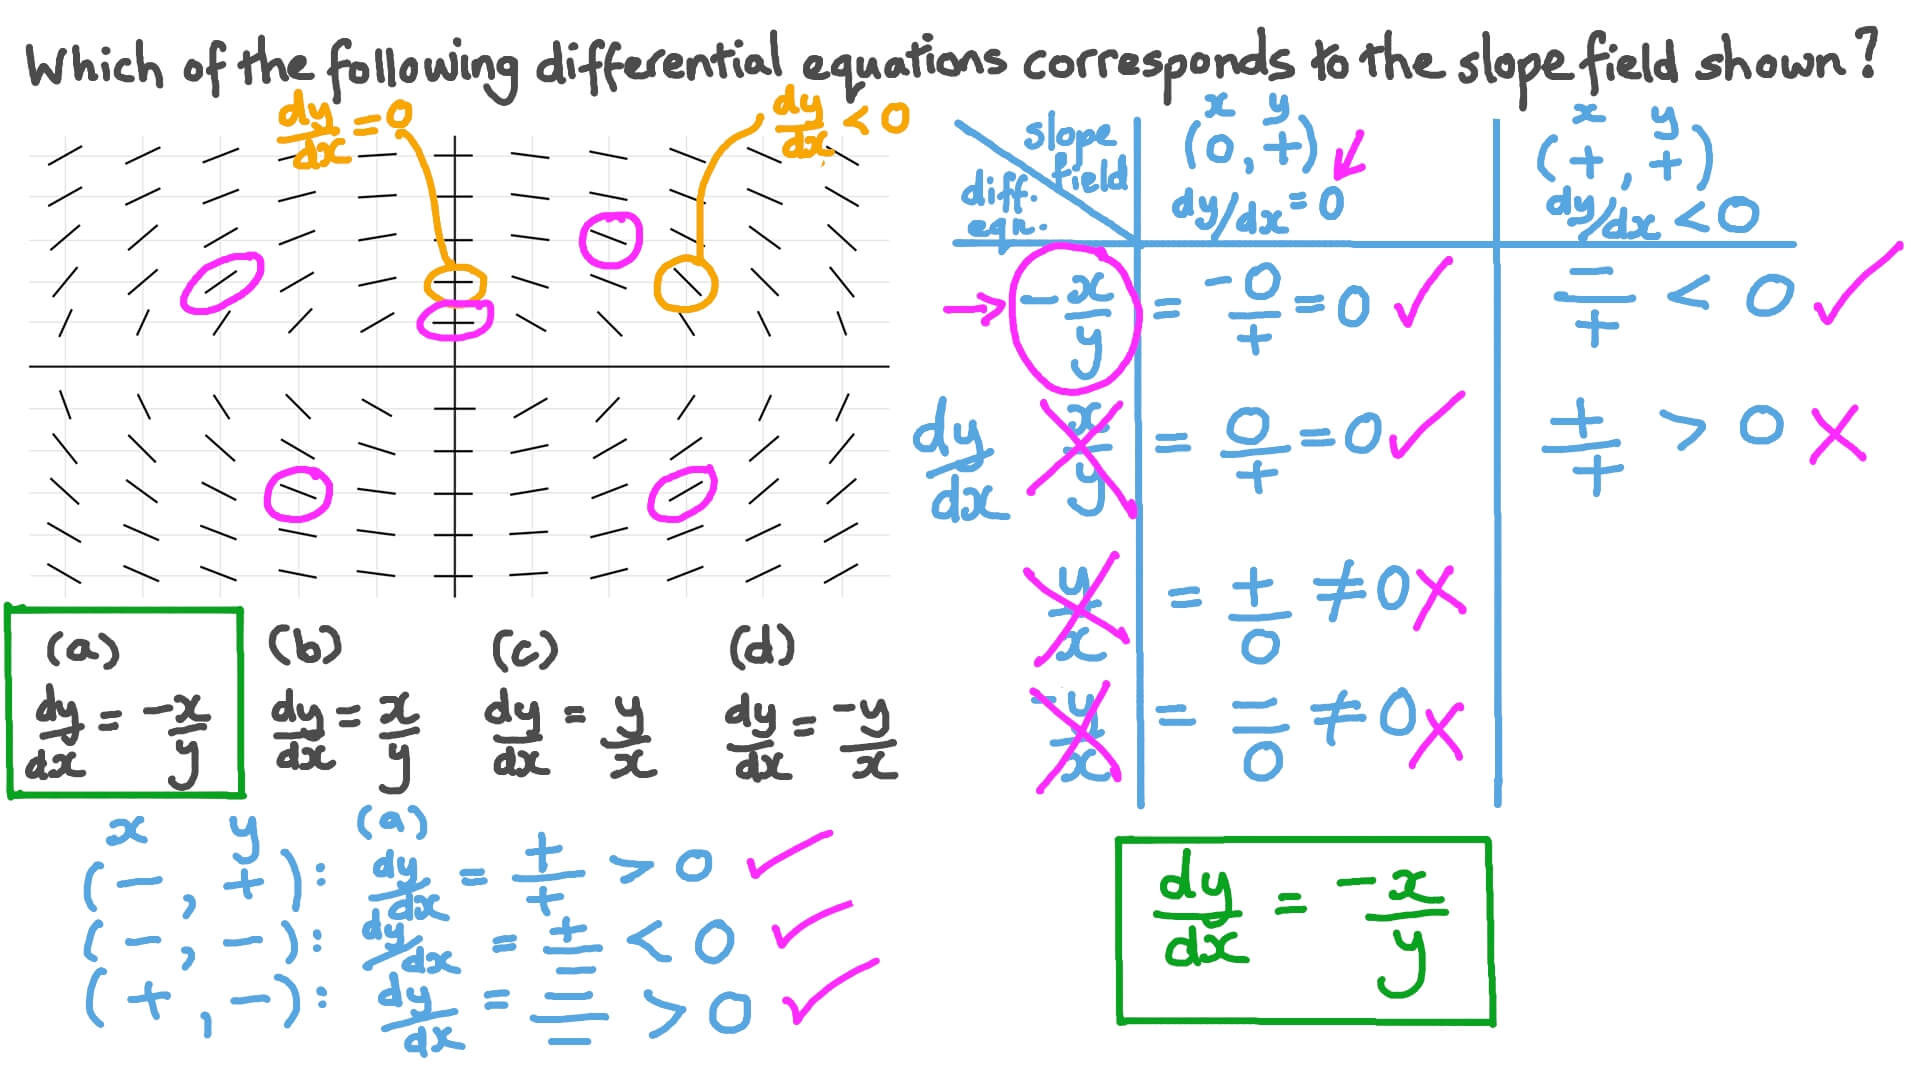 Which of the following differential equations corresponds to the slope field shown?
dy/dx = 0
dy/dx < 0
slope field
diff. eqn.
x y
(0, +)
dy/dx = 0
x y
(+, +)
dy/dx < 0
dy/dx
-x/y = -0/+ = 0 ✓
-/+ < 0 ✓
x/y = 0/+ = 0 ✓
+/+ > 0 ×
y/x = +/0 ≠ 0 ×
-y/x = -/0 ≠ 0 ×
(a) (b) (c) (d)
dy/dx = -x/y
dy/dx = x/y
dy/dx = y/x
dy/dx = -y/x
x y (a)
(-, +): dy/dx = +/+ > 0 ✓
(-, -): dy/dx = +/- < 0 ✓
(+, -): dy/dx = -/- > 0 ✓
dy/dx = -x/y